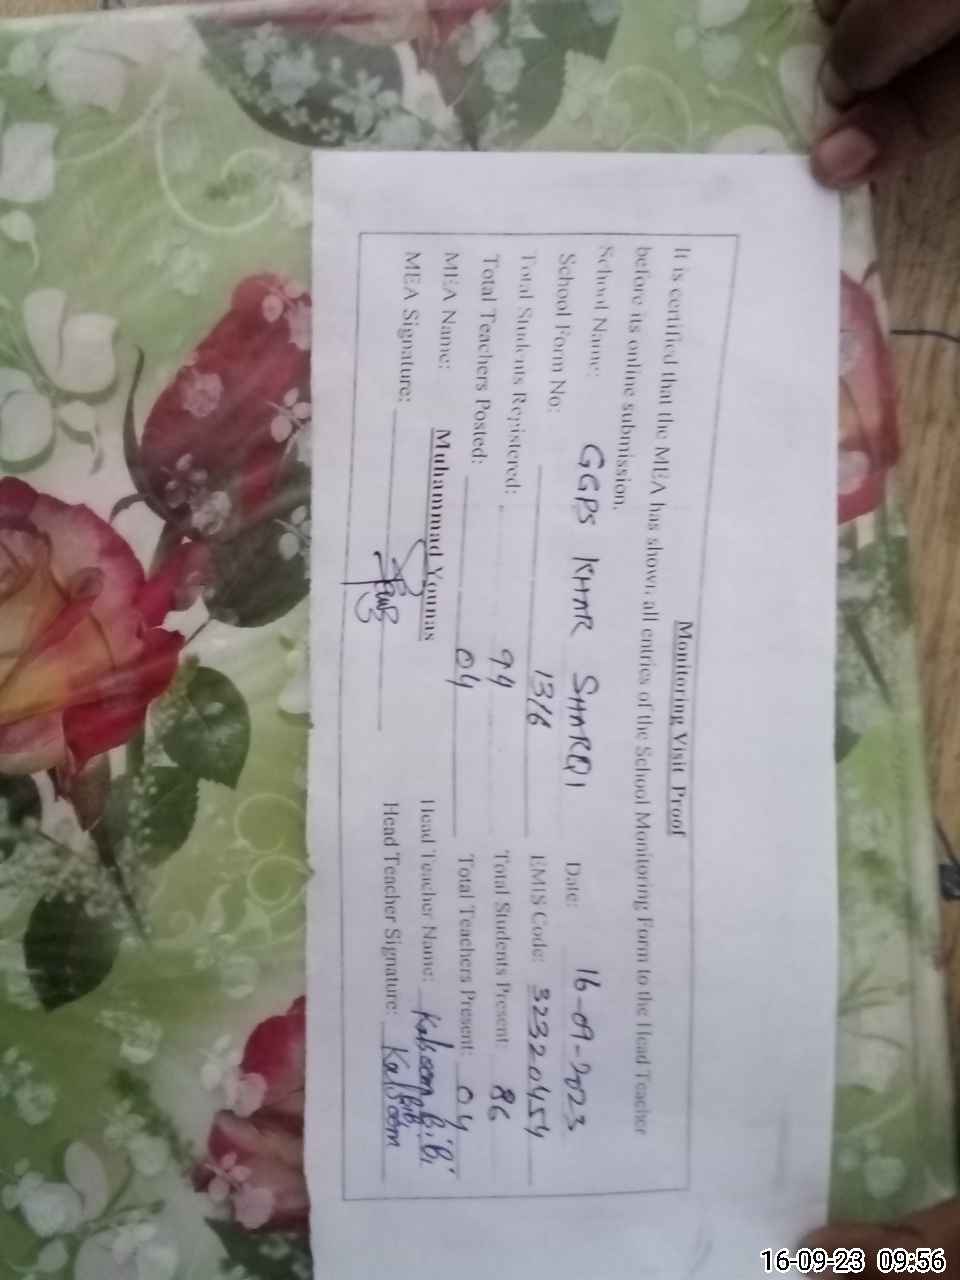 Monitoring Visit Proof
It is certified that the MEA has shown all entries of the School Monitoring Form to the Head Teacher
before its online submission.
School Name: GGPS KHAR SHARQI Date: 16-09-2023
School Form No: 1316 EMIS Code: 32320454
Total Students Registered: 94 Total Students Present: 86
Total Teachers Posted: 04 Total Teachers Present: 04
MEA Name: Muhammad Younas Head Teacher Name: Kalsoom Bibi
MEA Signature: Head Teacher Signature: Kalsoom Bibi
16-09-23 09:56